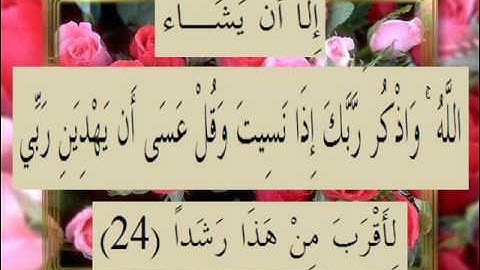 إِلَّا أَن يَشَـــاء
اللَّهُ ۚ وَاذْكُر رَّبَّكَ إِذَا نَسِيتَ وَقُلْ عَسَى أَن يَهْدِيَنِ رَبِّي
لِأَقْرَبَ مِنْ هَذَا رَشَداً (24)